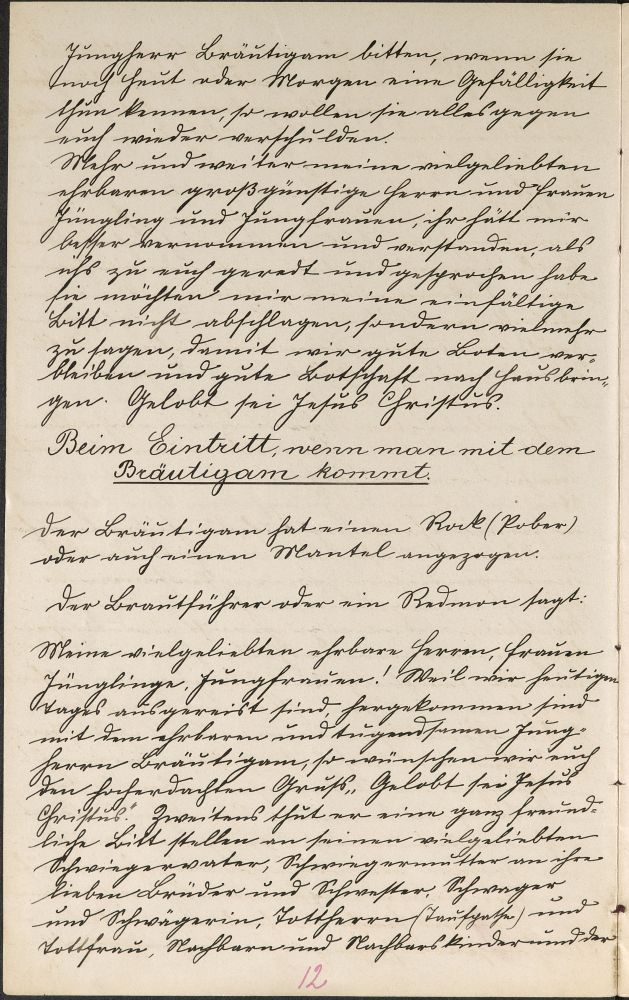 Jungherr Bräutigam bitten, wenn sie
noch heut oder Morgen eine Gefälligkeit
thun kennen, so wollen sie alles gegen
euch wieder verschulden.
Mehr und weiter meine vielgeliebten
ehrbaren großgünstige Herrn und Frauen
Jüngling und Jungfrauen, ihr hätt mir
besser vernommen und verstanden, als
ichs zu euch geredt und gesprochen habe
sie möchten mir meine einfältige
Bitt nicht abschlagen, sondern vielmehr
zu sagen, damit wir gute Boten ver=
bleiben und gute Botschaft nach Haus brin=
gen. Gelobt sei Jesus Christus.
Beim Eintritt, wenn man mit dem
Bräutigam kommt.
Der Bräutigam hat einen Rock (Pober)
oder auch einen Mantel angezogen.
Der Brautführer oder ein Redmon sagt:
Meine vielgeliebten ehrbare Herren, Frauen
Jünglinge, Jungfrauen! Weil wir heutigen
Tages ausgereist sind, hergekommen sind
mit dem ehrbaren und tugendsamen Jung=
herrn Bräutigam, so wünschen wir euch
den hocherdachten Gruß „Gelobt sei Jesus
Christus". Zweitens thut er eine ganz freund=
liche Bitt stellen an seinen vielgeliebten
Schwiegervater, Schwiegermutter an ihre
lieben Brüder und Schwester, Schwager
und Schwägerin, Tottherrn (Taufpathe) und
Tottfrau, Nachbarn und Nachbarskinder und der
12